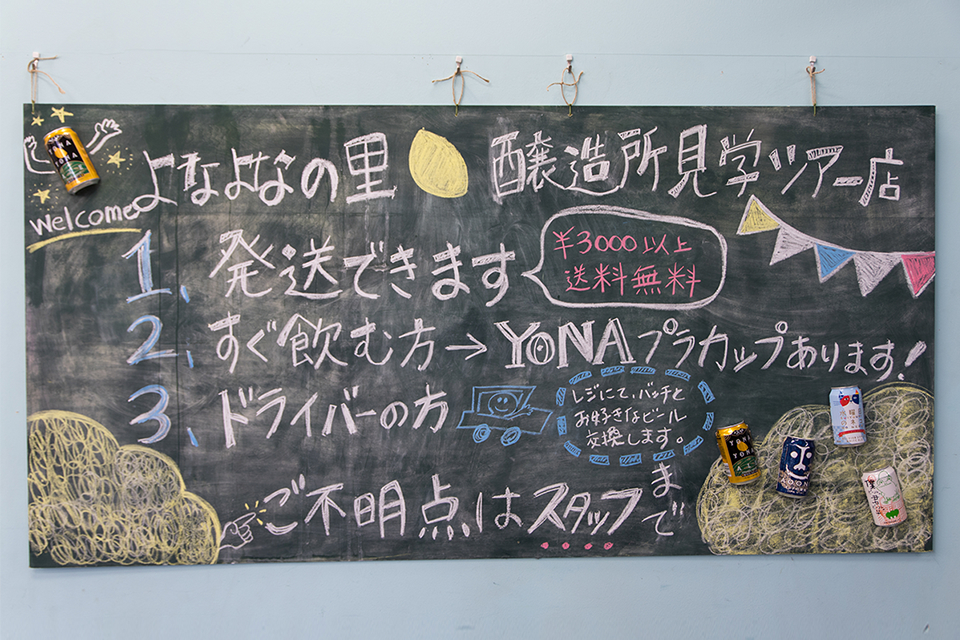 よなよなの里 醸造所見学ツアー店
Welcome
1、発送できます
¥3000以上
送料無料
2、すぐ飲む方→YONAプラカップあります!
3、ドライバーの方
レジにて、バッチと
お好きなビール
交換します。
ご不明点はスタッフまで
YONA
YONA
YONA
YONA